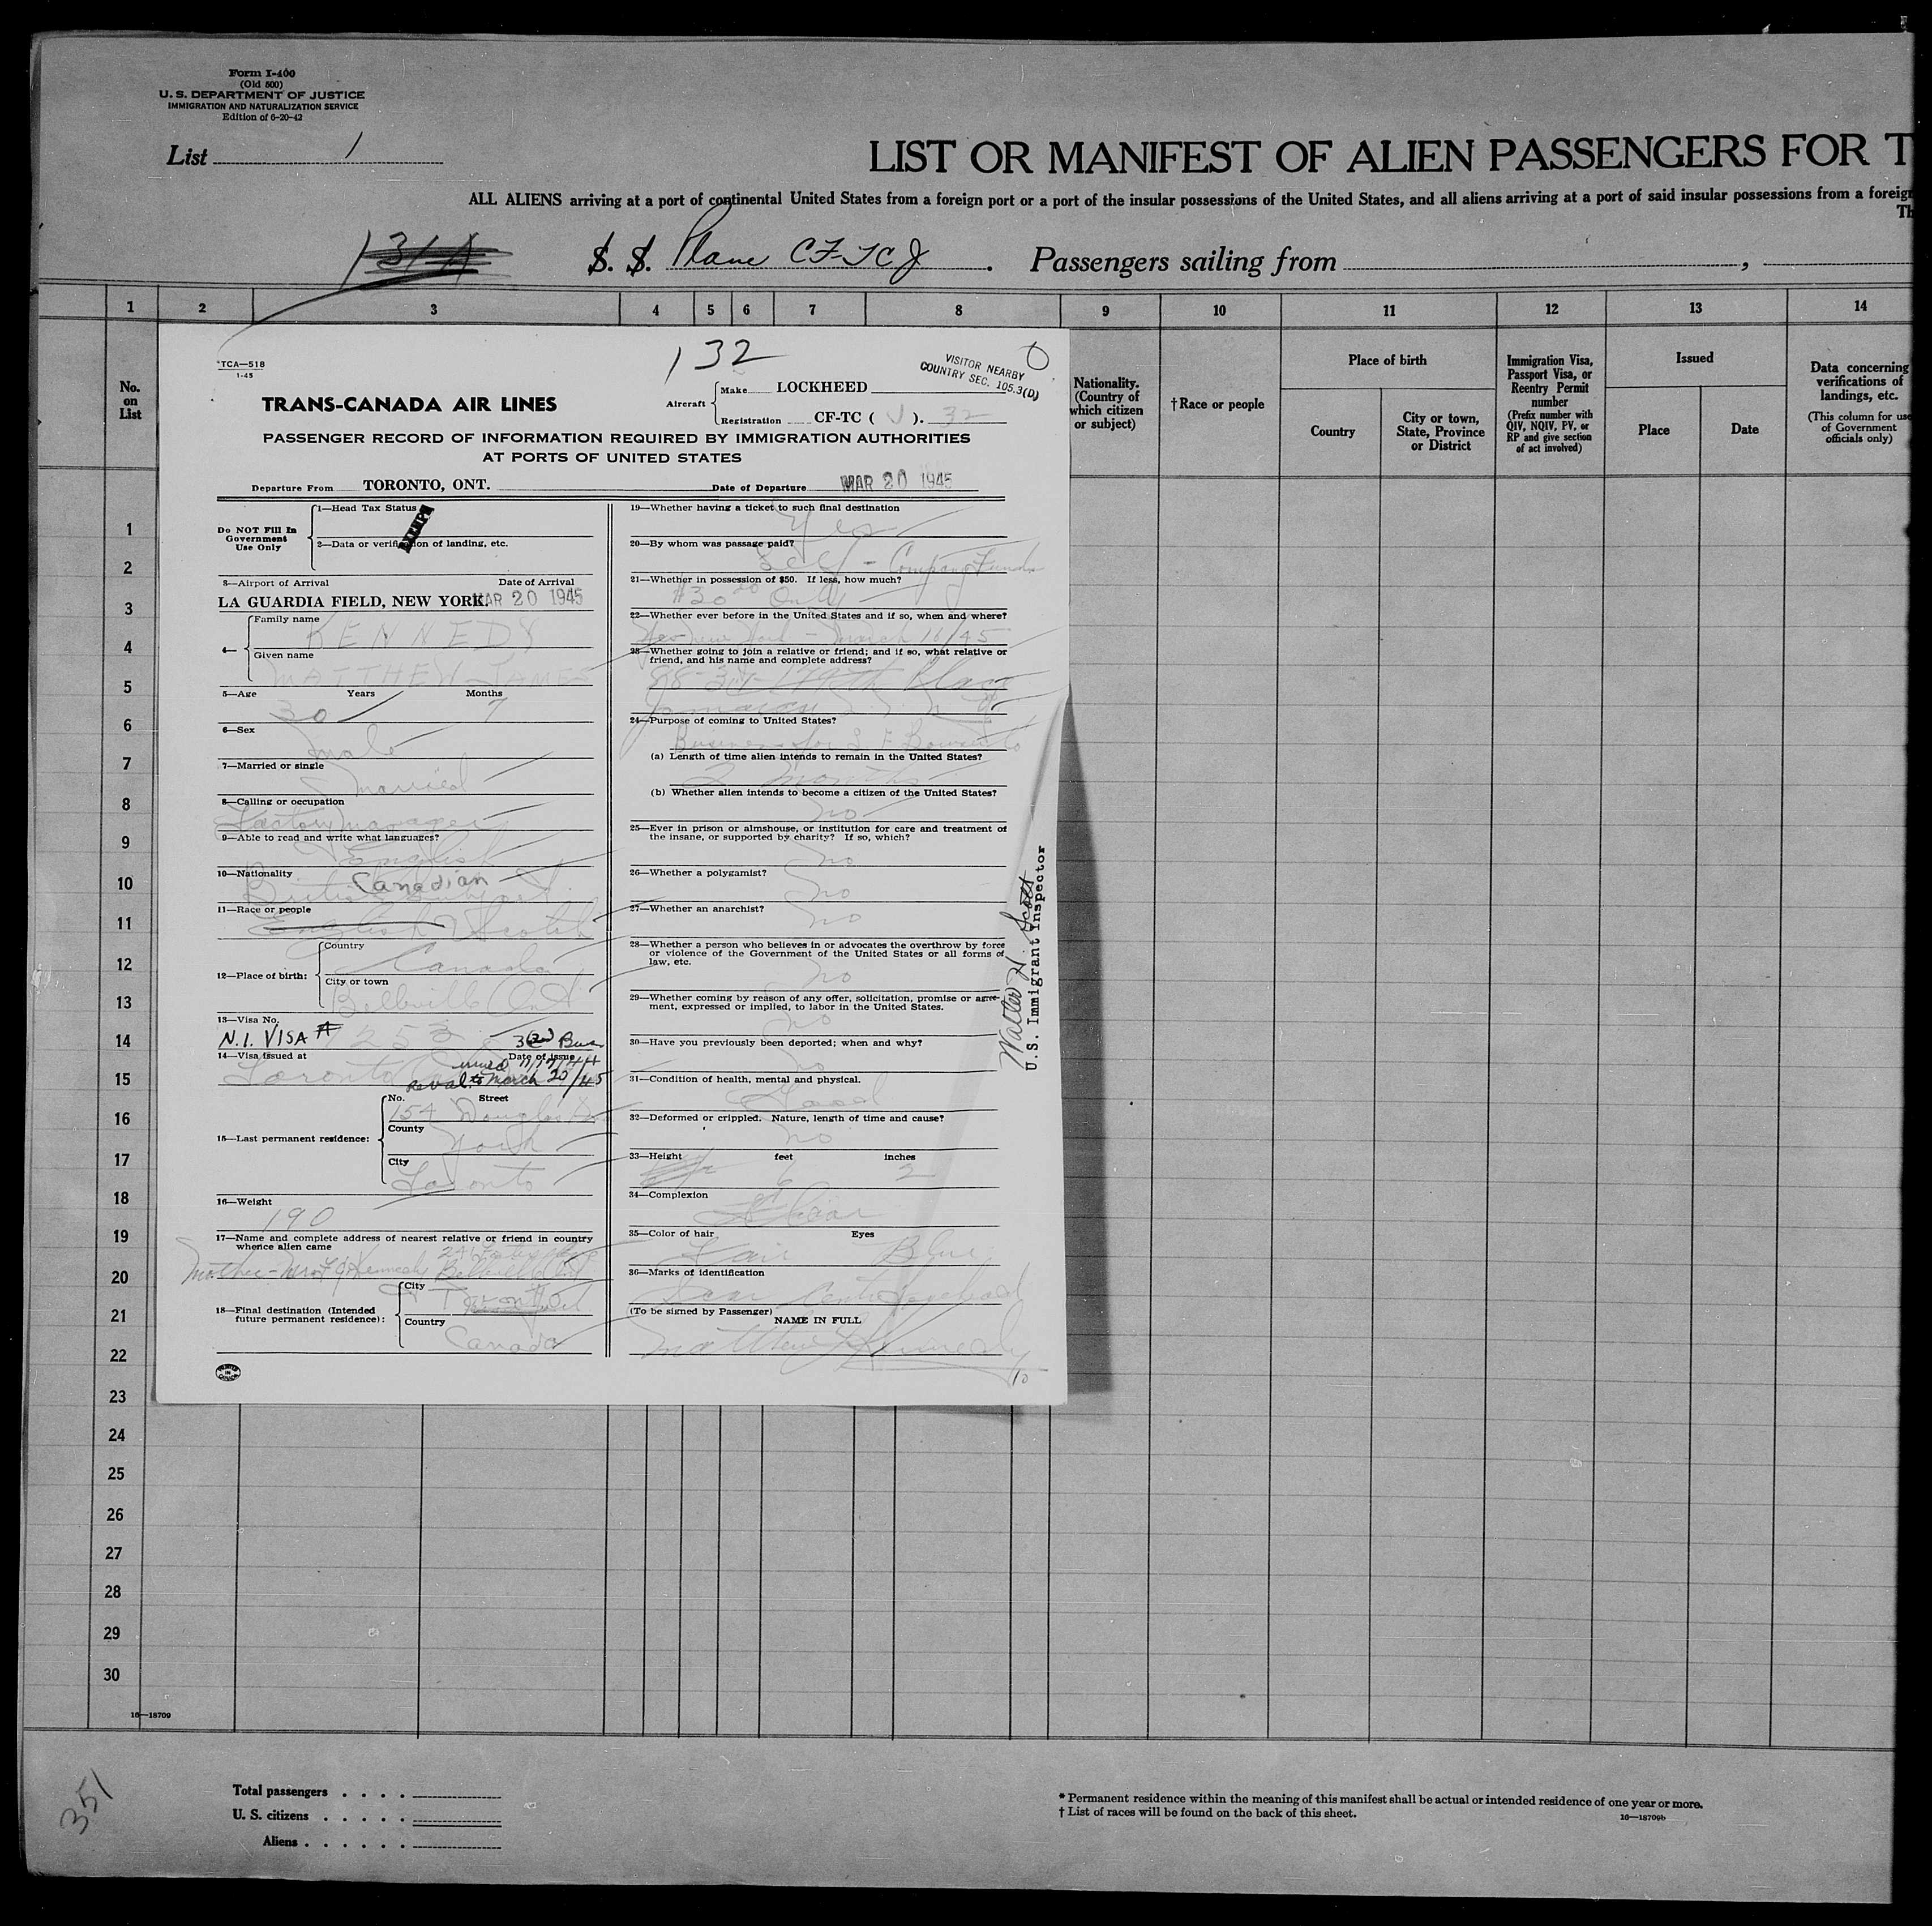 Form I-400
(Old 500)
U. S. DEPARTMENT OF JUSTICE
IMMIGRATION AND NATURALIZATION SERVICE
Edition of 6-20-42
List 1
LIST OR MANIFEST OF ALIEN PASSENGERS FOR T
ALL ALIENS arriving at a port of continental United States from a foreign port or a port of the insular possessions of the United States, and all aliens arriving at a port of said insular possessions from a foreign
Th
131A
S. S. Plane CF-TCJ. Passengers sailing from ,
1 2 3 4 5 6 7 8 9 10 11 12 13 14
No. on List
Nationality. (Country of which citizen or subject)
†Race or people
Place of birth
Country
City or town, State, Province or District
Immigration Visa, Passport Visa, or Reentry Permit number
(Prefix number with QIV, NQIV, PV, or RP and give section of act involved)
Issued
Place
Date
Data concerning verifications of landings, etc.
(This column for use of Government officials only)
TCA—518
1-45
132
VISITOR NEARBY
COUNTRY SEC. 105.3(D)
TRANS-CANADA AIR LINES
Aircraft
Make LOCKHEED
Registration CF-TC ( J ). 32
PASSENGER RECORD OF INFORMATION REQUIRED BY IMMIGRATION AUTHORITIES
AT PORTS OF UNITED STATES
Departure From TORONTO, ONT.
Date of Departure MAR 20 1945
Do NOT Fill In
Government
Use Only
1—Head Tax Status
2—Data or verification of landing, etc.
3—Airport of Arrival Date of Arrival
LA GUARDIA FIELD, NEW YORK. MAR 20 1945
4—
Family name
KENNEDY
Given name
MATTHEW JAMES
5—Age Years Months
30 7
6—Sex
Male
7—Married or single
Married
8—Calling or occupation
Factory manager
9—Able to read and write what languages?
English
10—Nationality
Canadian
11—Race or people
English Scotch
12—Place of birth:
Country
Canada
City or town
Belleville Ont
13—Visa No.
N.I. VISA # 253 3(2) Bus
14—Visa issued at Date of issue
Toronto issued 11/17/44
reval to March 20/45
15—Last permanent residence:
No. Street
154 Douglas
County
York
City
Toronto
16—Weight
190
17—Name and complete address of nearest relative or friend in country
whence alien came
Mother - Mrs Kennedy Belleville Ont
18—Final destination (Intended
future permanent residence):
City
Toronto
Country
Canada
19—Whether having a ticket to such final destination
Yes
20—By whom was passage paid?
Self - Company Funds
21—Whether in possession of $50. If less, how much?
$30 Only
22—Whether ever before in the United States and if so, when and where?
Yes New York - March 16/45
23—Whether going to join a relative or friend; and if so, what relative or
friend, and his name and complete address?
Place
Jamaica
24—Purpose of coming to United States?
Business for S F Bowser Co
(a) Length of time alien intends to remain in the United States?
2 months
(b) Whether alien intends to become a citizen of the United States?
no
25—Ever in prison or almshouse, or institution for care and treatment of
the insane, or supported by charity? If so, which?
no
26—Whether a polygamist?
no
27—Whether an anarchist?
no
28—Whether a person who believes in or advocates the overthrow by force
or violence of the Government of the United States or all forms of
law, etc.
no
29—Whether coming by reason of any offer, solicitation, promise or agree-
ment, expressed or implied, to labor in the United States.
no
30—Have you previously been deported; when and why?
no
31—Condition of health, mental and physical.
Good
32—Deformed or crippled. Nature, length of time and cause?
no
33—Height feet inches
6 2
34—Complexion
Clear
35—Color of hair Eyes
Fair Blue
36—Marks of identification
Scar Centre forehead
(To be signed by Passenger)
NAME IN FULL
Matthew J Kennedy
10
Walter H. Scott
U.S. Immigrant Inspector
1
2
3
4
5
6
7
8
9
10
11
12
13
14
15
16
17
18
19
20
21
22
23
24
25
26
27
28
29
30
16—18709
351
Total passengers . . . .
U. S. citizens . . . . .
Aliens . . . . . .
* Permanent residence within the meaning of this manifest shall be actual or intended residence of one year or more.
† List of races will be found on the back of this sheet.
16—18709b